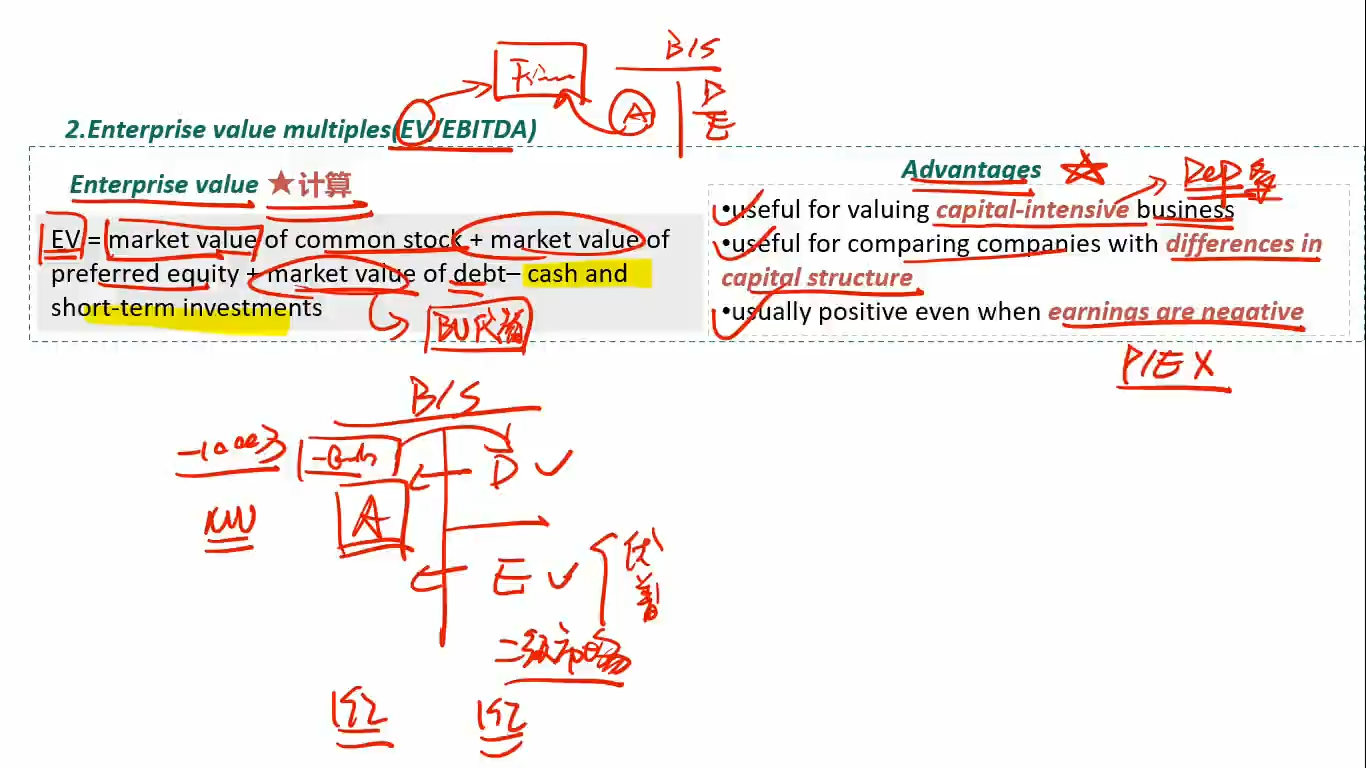 B/S
Firm
A
D
E
2.Enterprise value multiples(EV/EBITDA)
Enterprise value ★计算
EV = market value of common stock + market value of
preferred equity + market value of debt– cash and
short-term investments
BV代替
Advantages
Dep多
•useful for valuing capital-intensive business
•useful for comparing companies with differences in
capital structure
•usually positive even when earnings are negative
P/E X
B/S
-1000万
D
A
E
优
普
二级市场
1亿
1亿